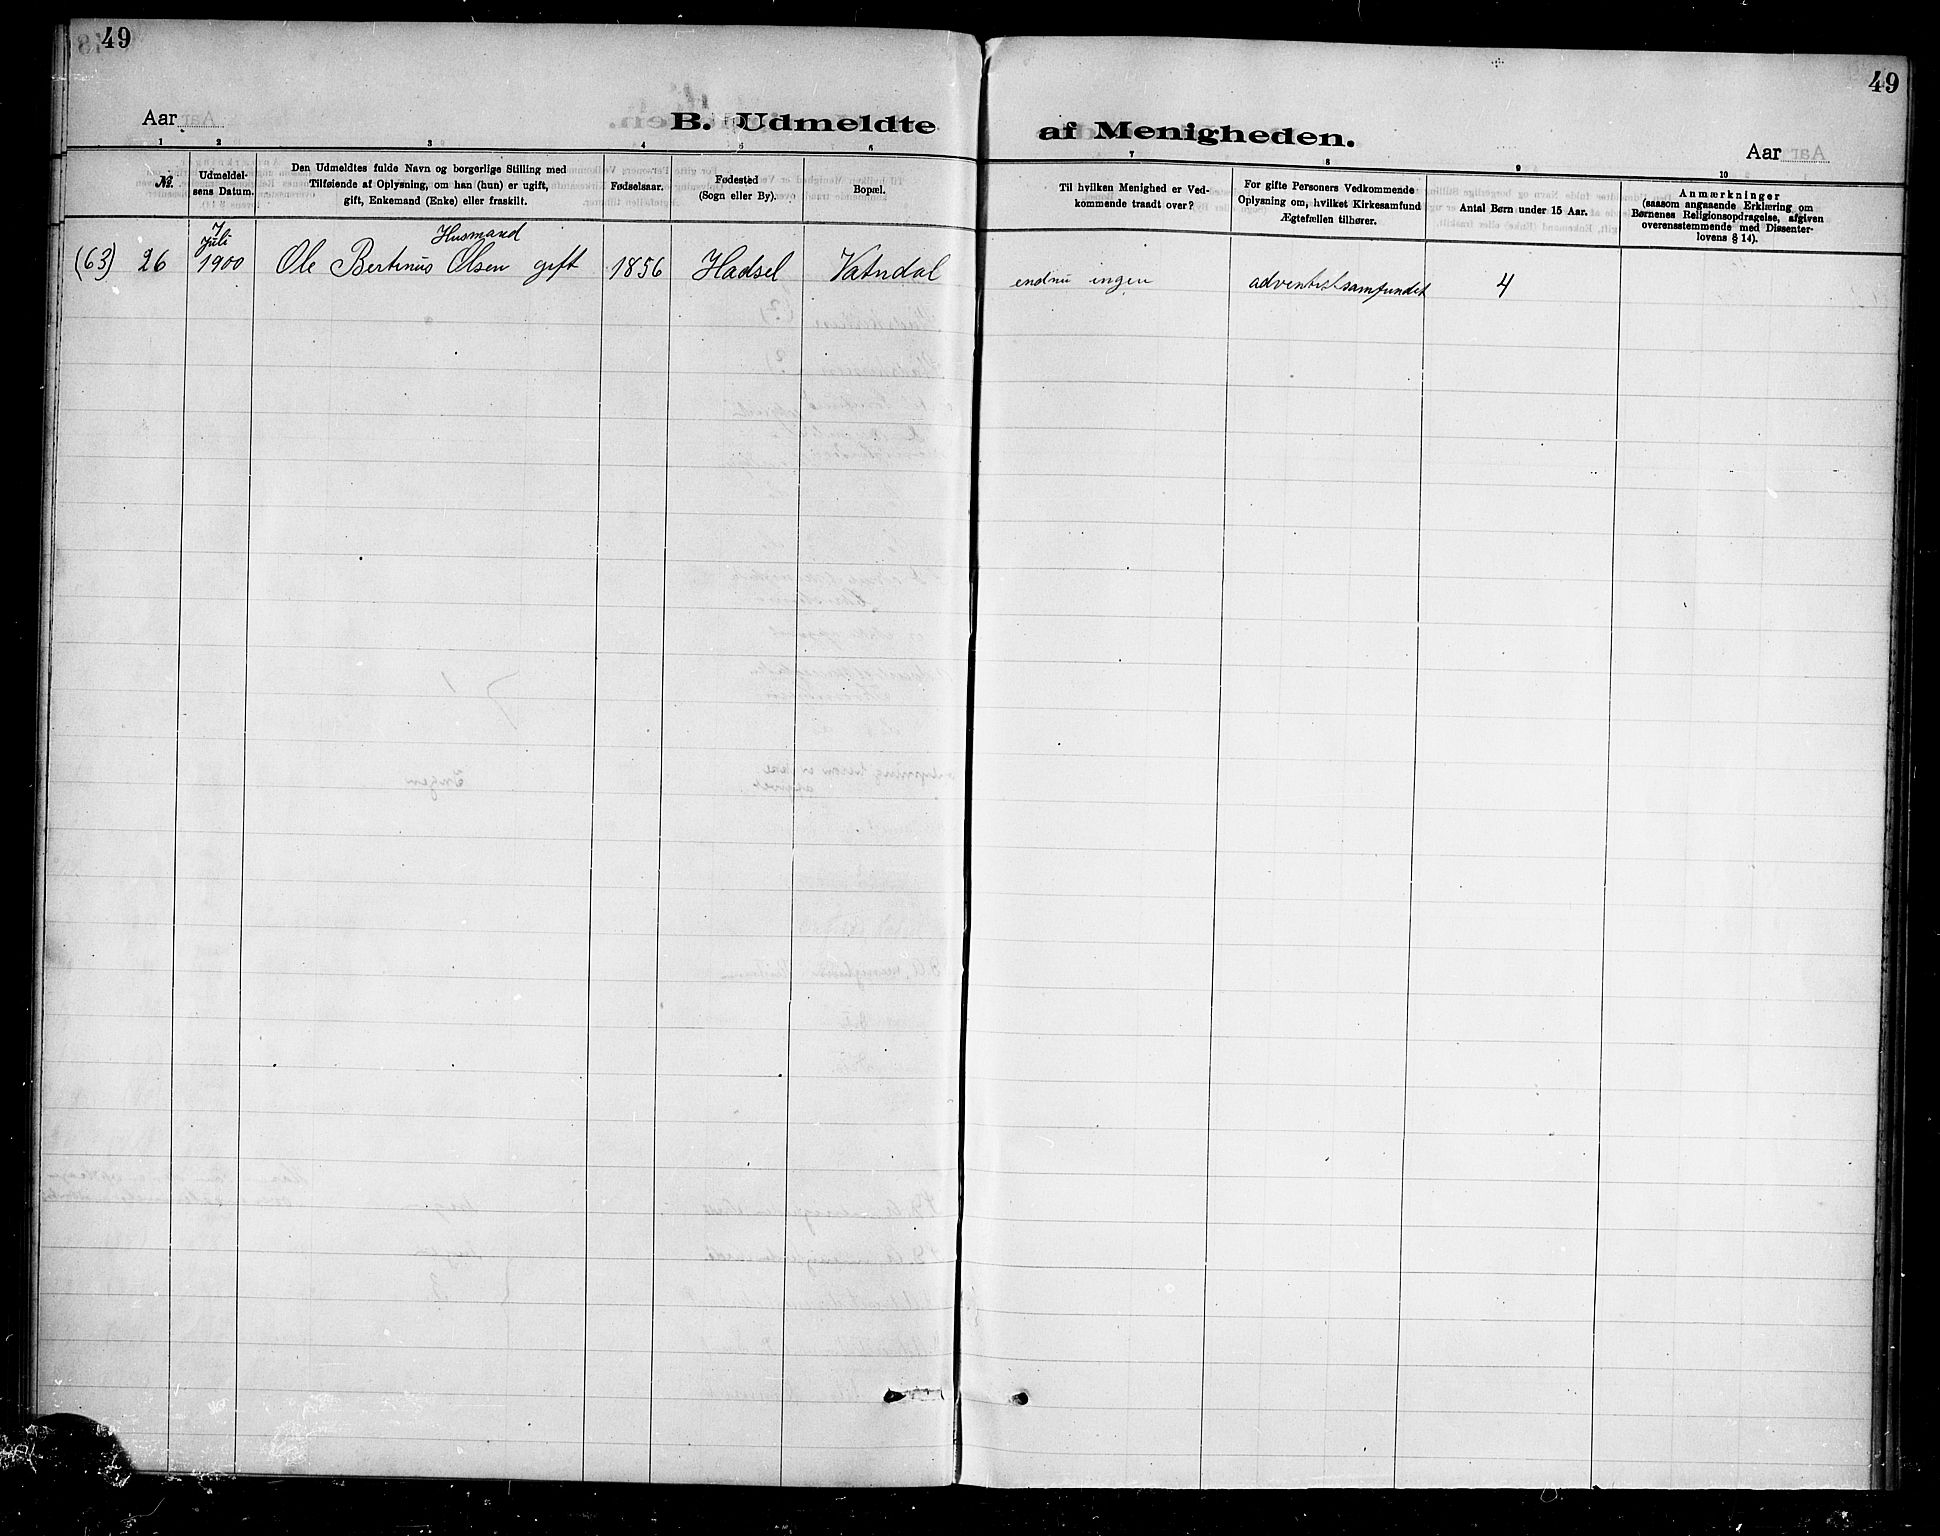 49
49
B. Udmeldte af Menigheden.
Aar
Aar
1 2 3 4 5 6 7 8 9 10
№.
Udmeldel-
sens Datum.
Den Udmeldtes fulde Navn og borgerlige Stilling med
Tilføiende af Oplysning, om han (hun) er ugift,
gift, Enkemand (Enke) eller fraskilt.
Fødselsaar.
Fødested
(Sogn eller By).
Bopæl.
Til hvilken Menighed er Ved-
kommende traadt over?
For gifte Personers Vedkommende
Oplysning om, hvilket Kirkesamfund
Ægtefællen tilhører.
Antal Børn under 15 Aar.
Anmærkninger
(saasom angaaende Erklæring om
Børnenes Religionsopdragelse, afgiven
overensstemmende med Dissenter-
lovens § 14).
7
Juli
Husmand
(63) 26 1900 Ole Bertinus Olsen gift 1856 Hadsel Vatndal endnu ingen adventistsamfundet 4